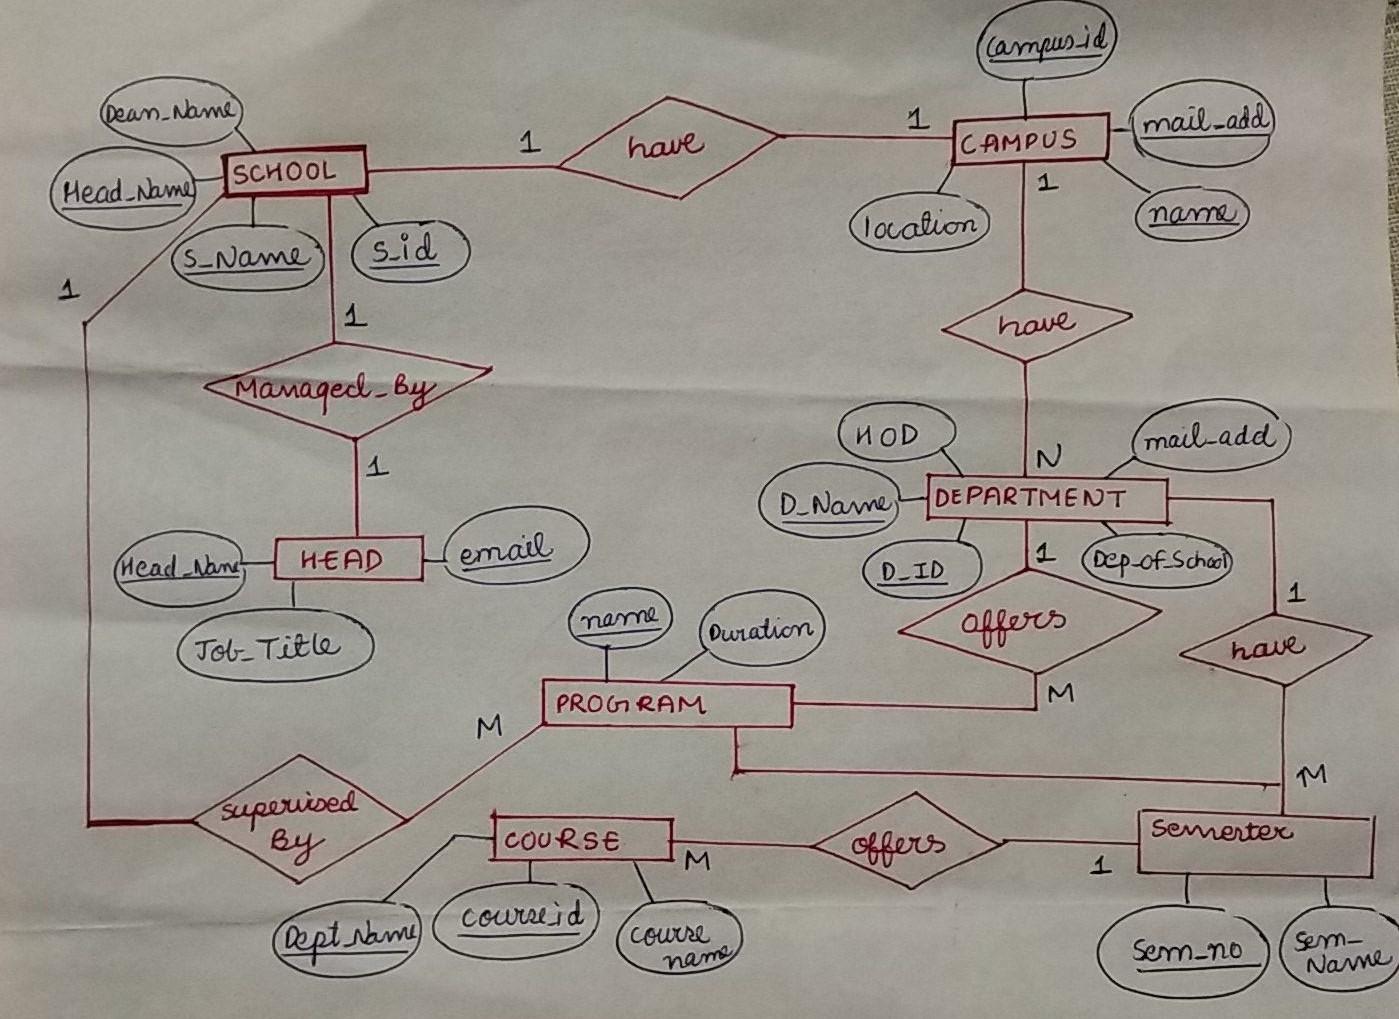 campus_id
Dean_Name
mail_add
1
1
have
CAMPUS
SCHOOL
Head_Name
1
location
name
S_Name
S_id
1
1
have
Managed_By
HOD
mail_add
1
N
D_Name
DEPARTMENT
Head_Name
HEAD
email
D_ID
1
Dep_of_School
1
name
Duration
offers
have
Job_Title
PROGRAM
M
M
M
supervised
By
COURSE
M
offers
1
Semester
Dept_Name
course_id
course
name
Sem_no
Sem_
Name